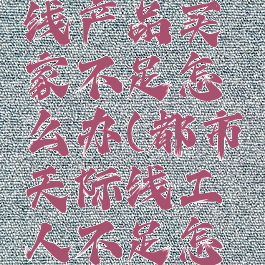 线产品买
家不足怎
么办(都市
天际线工
人不足怎